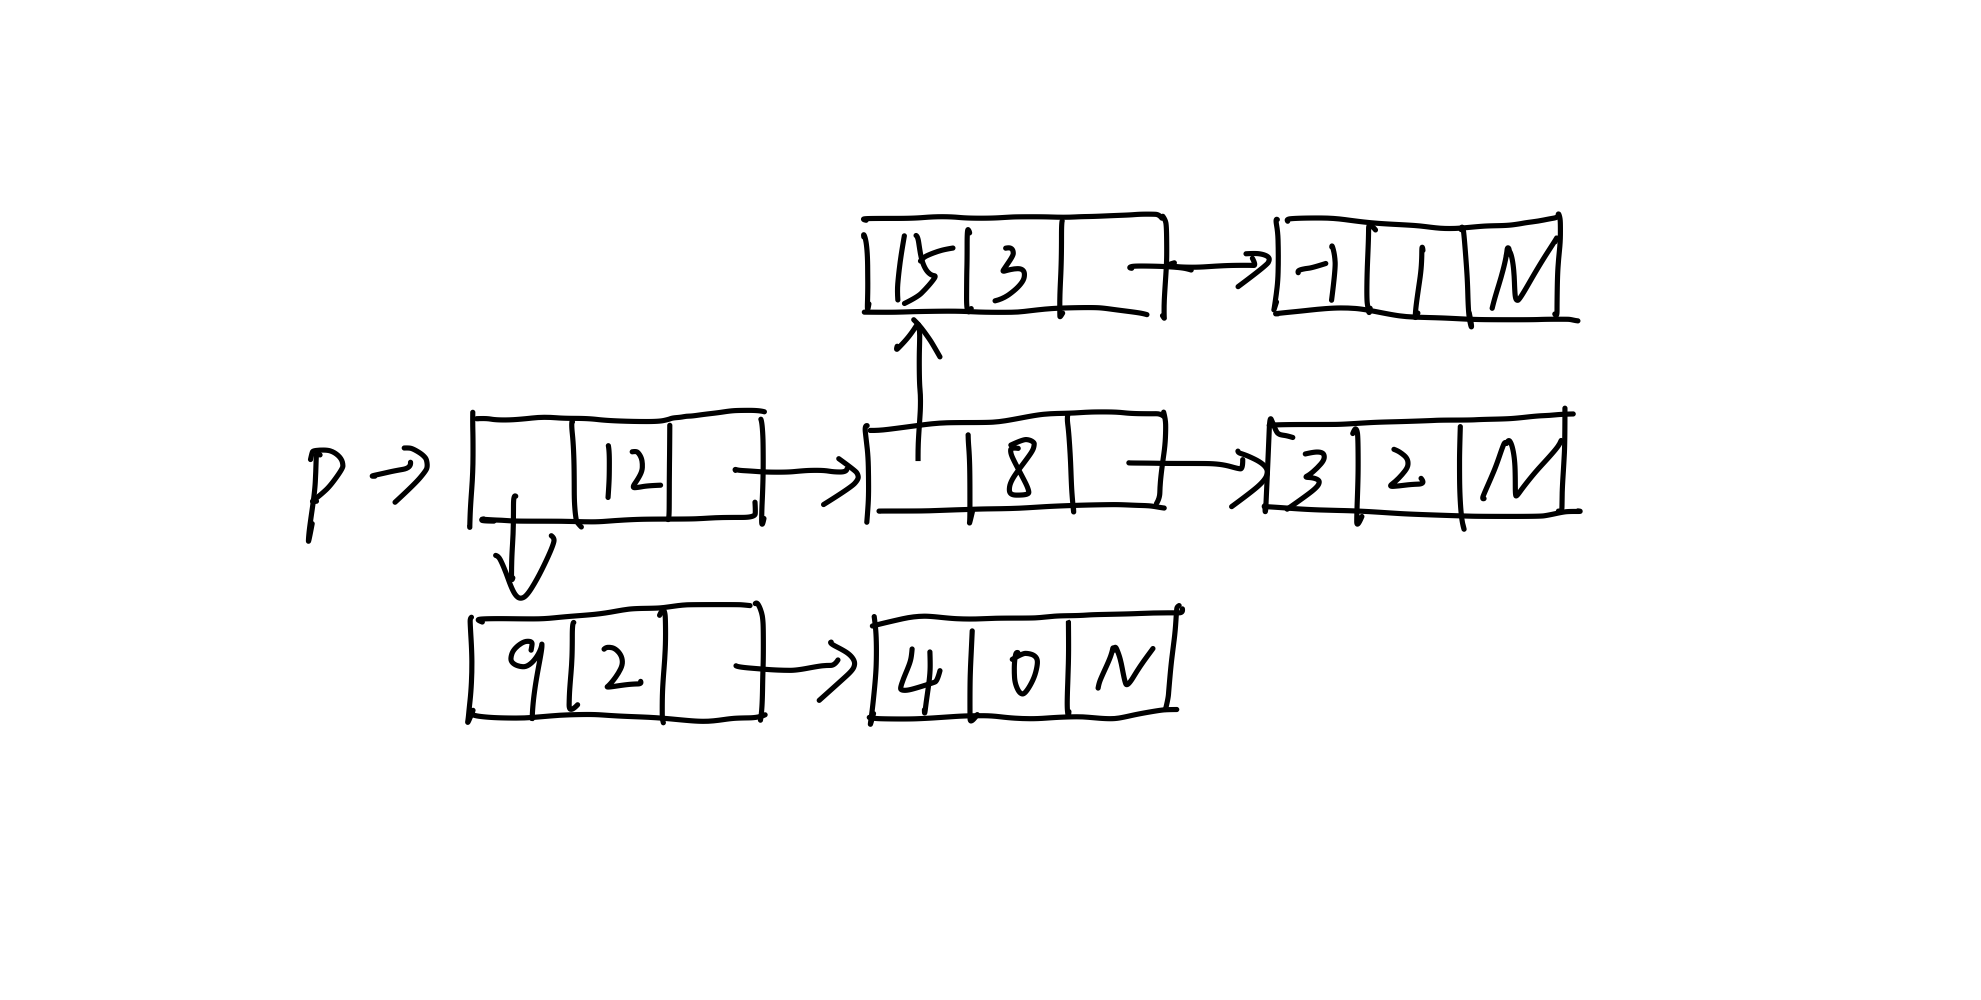 15 3 -1 1 N
P 12 8 3 2 N
9 2 4 0 N